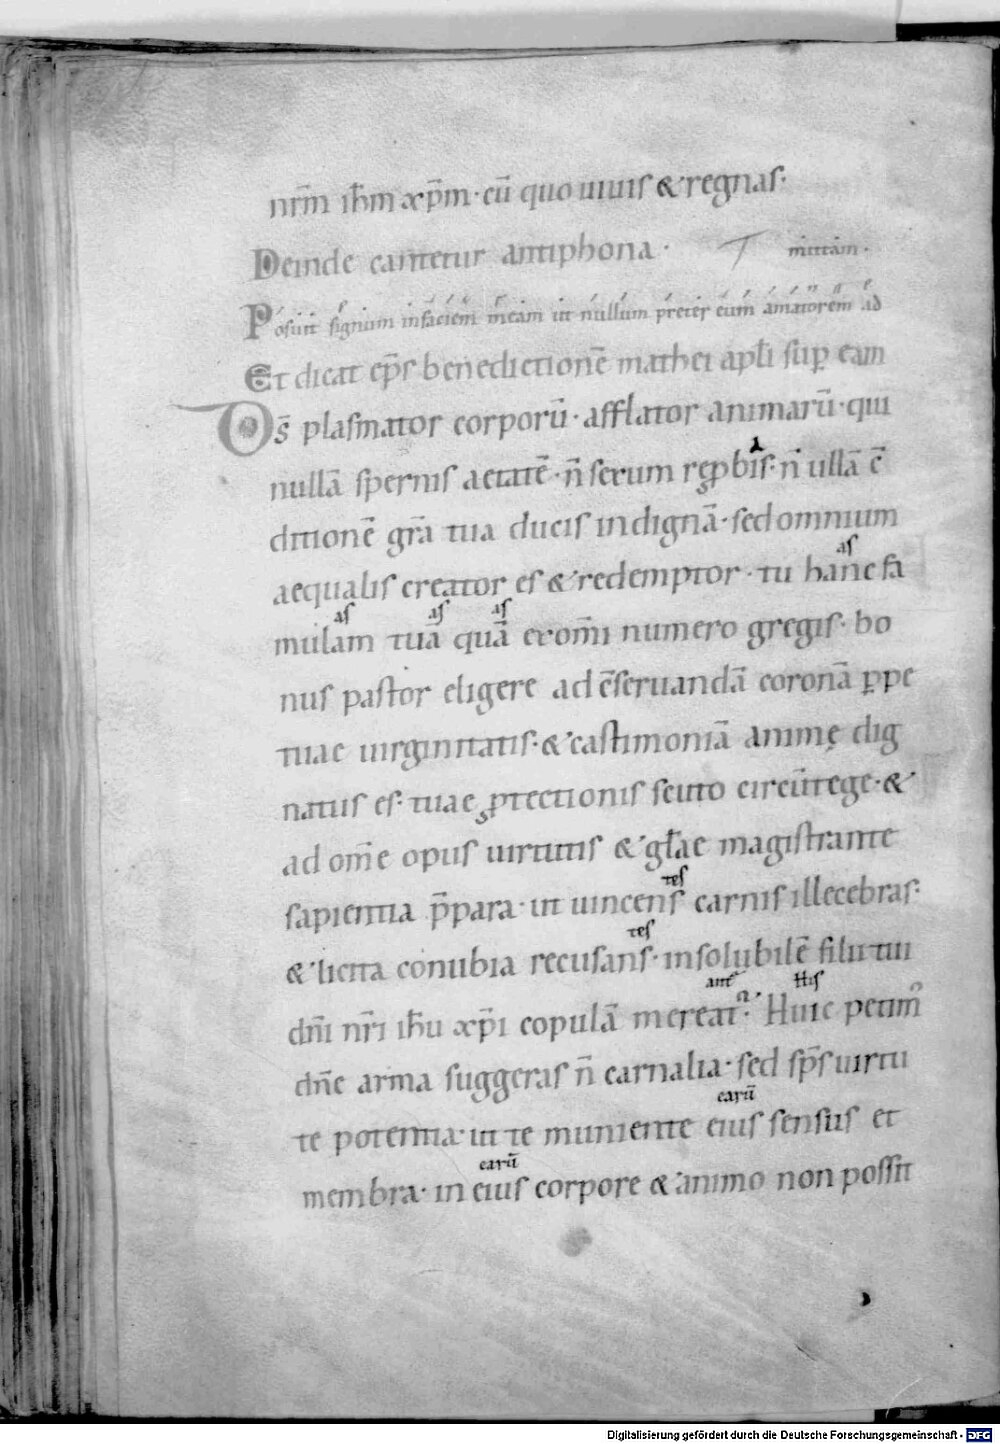 nr̄m ih̄m xp̄m · cū quo uiuis & regnas ·
Deinde cantetur antiphona · mittam ·
Posuit signum in faciem meam ut nullum preter eum amatorem ad
Et dicat ep̄s benedictionē mathei apl̄i sup eam
Ds̄ plasmator corporū · afflator animarū · qui
nullā spernis aetatē · n̄ sexum reꝓbas · n̄ ullā c̄
ditionē gr̄a tua ducis indignā · sed omnium
aequalis creator es & redemptor · tu hanc fa
as
mulam tuā quā ex om̄i numero gregis · bo
as as as
nus pastor eligere ad c̄seruandā coronā ꝑpe
tuae uirginitatis · & castimoniā animę dig
natus es · tuae ꝓtectionis scuto circūtege · &
ad om̄e opus uirtutis & gl̄ae magistrante
sapientia p̄para · ut uincens carnis illecebras ·
tes
& licita conubia recusans · insolubilē filii tui
tes
dn̄i nr̄i ih̄u xp̄i copulā mereat᷑ · Huic petim᷒
ant His
dn̄e arma suggeras n̄ carnalia · sed sp̄s uirtu
te potentia · ut te muniente eius sensus et
earū
membra · in eius corpore & animo non possit
earū
Digitalisierung gefördert durch die Deutsche Forschungsgemeinschaft - DFG